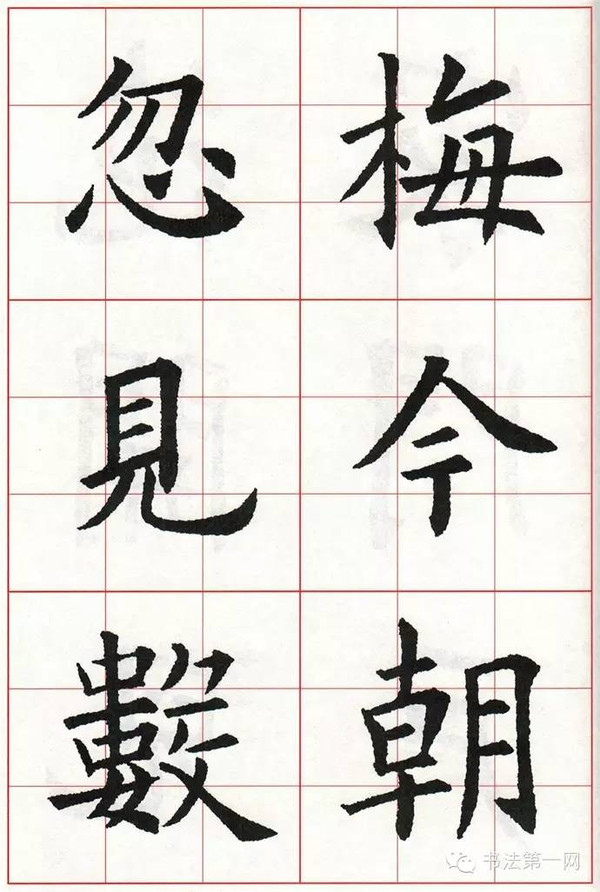 梅今朝
忽見數
书法第一网